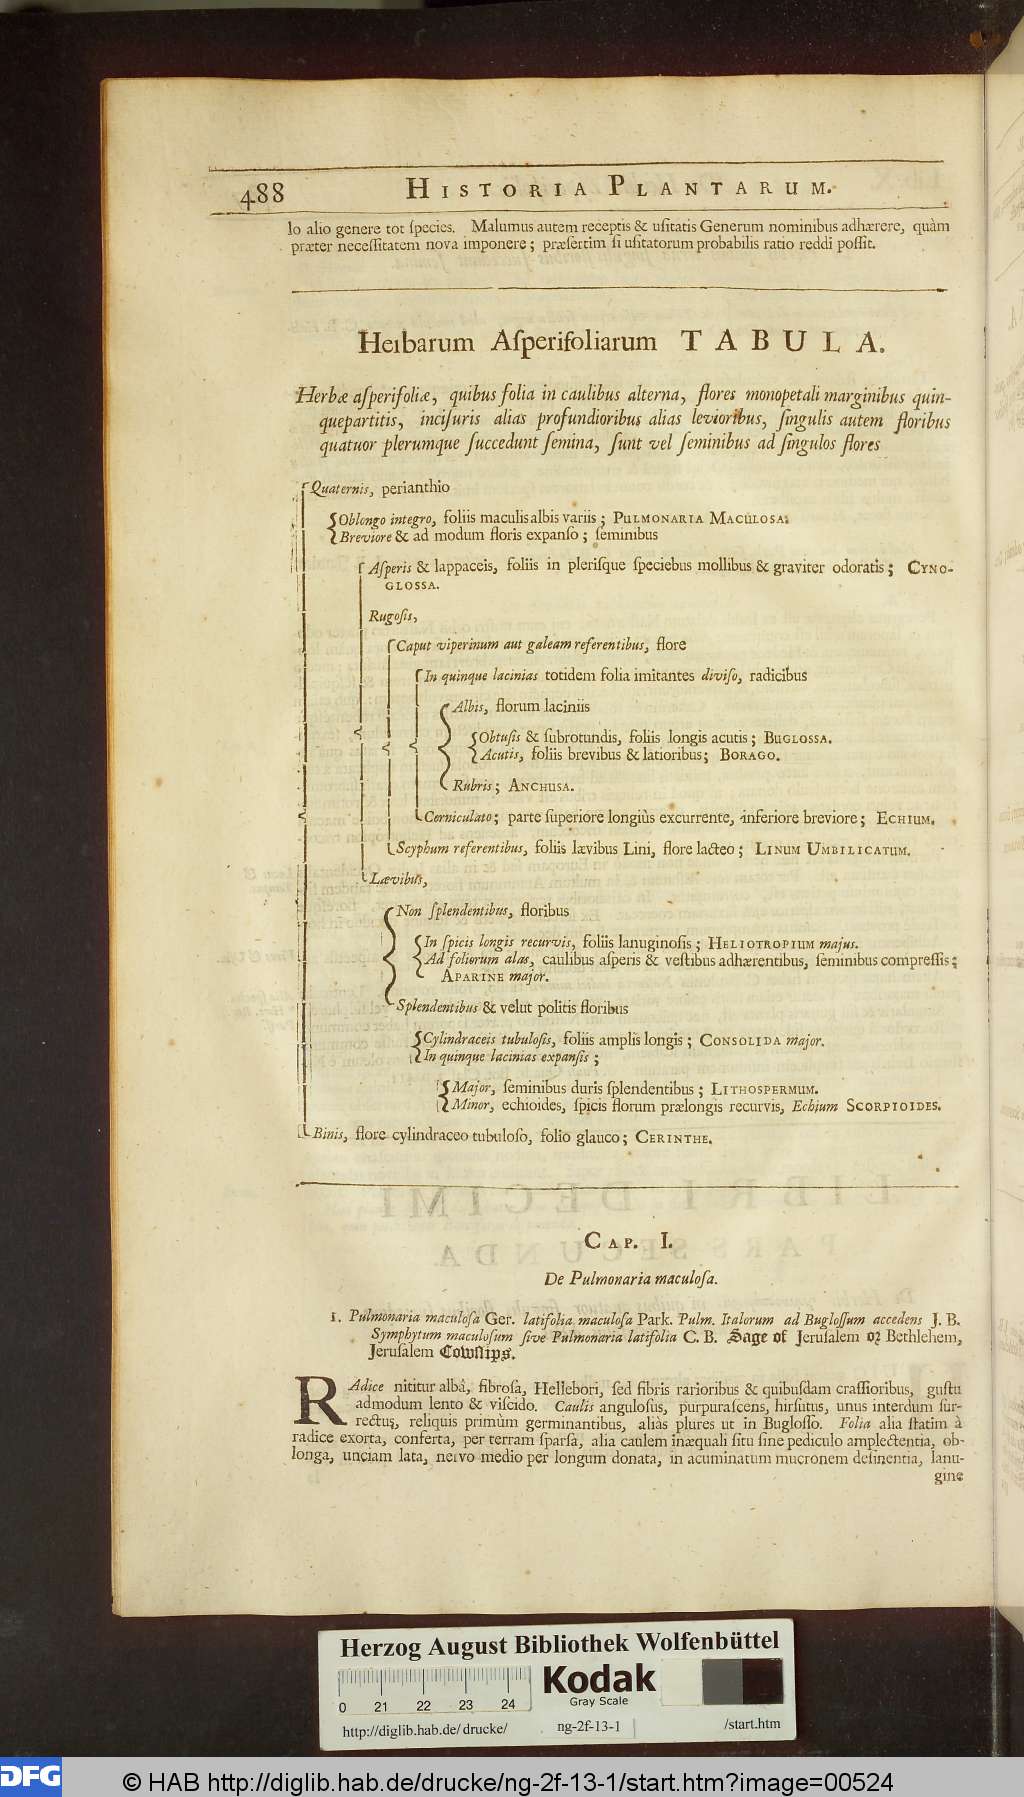 488 HISTORIA PLANTARUM.
lo alio genere tot ſpecies. Malumus autem receptis & uſitatis Generum nominibus adhærere, quàm
præter neceſſitatem nova imponere; præſertim ſi uſitatorum probabilis ratio reddi poſſit.
Herbarum Aſperifoliarum TABULA.
Herbæ aſperifoliæ, quibus folia in caulibus alterna, flores monopetali marginibus quin-
quepartitis, inciſuris alias profundioribus alias levioribus, ſingulis autem floribus
quatuor plerumque ſuccedunt ſemina, ſunt vel ſeminibus ad ſingulos flores
Quaternis, perianthio
Oblongo integro, foliis maculis albis variis; PULMONARIA MACULOSA.
Breviore & ad modum floris expanſo; ſeminibus
Aſperis & lappaceis, foliis in pleriſque ſpeciebus mollibus & graviter odoratis; CYNO-
GLOSSA.
Rugoſis,
Caput viperinum aut galeam referentibus, flore
In quinque lacinias totidem folia imitantes diviſo, radicibus
Albis, florum laciniis
Obtuſis & ſubrotundis, foliis longis acutis; BUGLOSSA.
Acutis, foliis brevibus & latioribus; BORAGO.
Rubris; ANCHUSA.
Corniculato; parte ſuperiore longiùs excurrente, inferiore breviore; ECHIUM.
Scyphum referentibus, foliis lævibus Lini, flore lacteo; LINUM UMBILICATUM.
Lævibus,
Non ſplendentibus, floribus
In ſpicis longis recurvis, foliis lanuginoſis; HELIOTROPIUM majus.
Ad foliorum alas, caulibus aſperis & veſtibus adhærentibus, ſeminibus compreſſis;
APARINE major.
Splendentibus & velut politis floribus
Cylindraceis tubuloſis, foliis amplis longis; CONSOLIDA major.
In quinque lacinias expanſis;
Major, ſeminibus duris ſplendentibus; LITHOSPERMUM.
Minor, echioides, ſpicis florum prælongis recurvis, Echium SCORPIOIDES.
Binis, flore cylindraceo tubuloſo, folio glauco; CERINTHE.
CAP. I.
De Pulmonaria maculoſa.
1. Pulmonaria maculoſa Ger. latifolia maculoſa Park. Pulm. Italorum ad Bugloſſum accedens J. B.
Symphytum maculoſum ſive Pulmonaria latifolia C. B. Sage of Jeruſalem oꝛ Bethlehem,
Jeruſalem Cowſlips.
RAdice nititur albâ, fibroſa, Hellebori, ſed fibris rarioribus & quibuſdam craſſioribus, guſtu
admodum lento & viſcido. Caulis anguloſus, purpuraſcens, hirſutus, unus interdum ſur-
rectus, reliquis primùm germinantibus, aliàs plures ut in Bugloſſo. Folia alia ſtatim à
radice exorta, conferta, per terram ſparſa, alia caulem inæquali ſitu ſine pediculo amplectentia, ob-
longa, unciam lata, nervo medio per longum donata, in acuminatum mucronem deſinentia, lanu-
gine
Herzog August Bibliothek Wolfenbüttel
Kodak
Gray Scale
0 21 22 23 24
http://diglib.hab.de/drucke/ ng-2f-13-1 /start.htm
DFG
© HAB http://diglib.hab.de/drucke/ng-2f-13-1/start.htm?image=00524